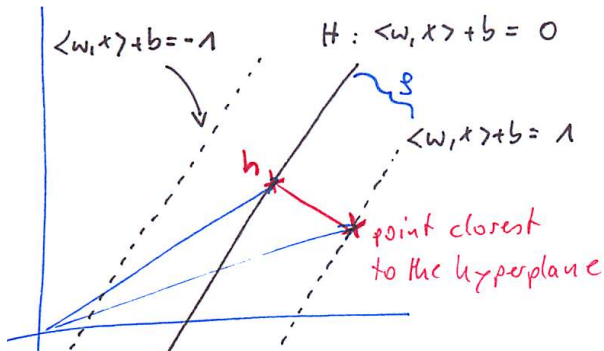 H : <w, x> + b = 0
<w, x> + b = -1
ρ
<w, x> + b = 1
h
point closest
to the hyperplane